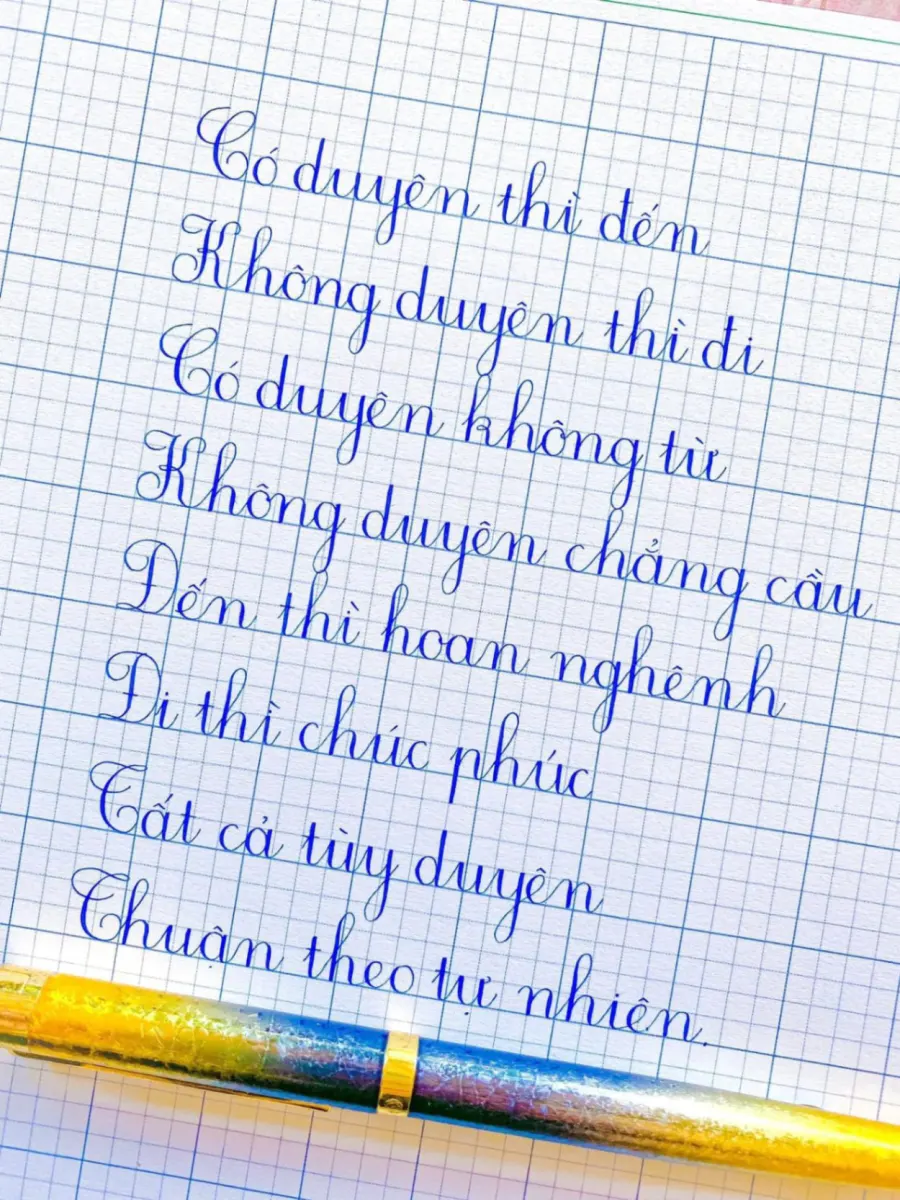 Có duyên thì đến
Không duyên thì đi
Có duyên không từ
Không duyên chẳng cầu
Đến thì hoan nghênh
Đi thì chúc phúc
Tất cả tùy duyên
Thuận theo tự nhiên.